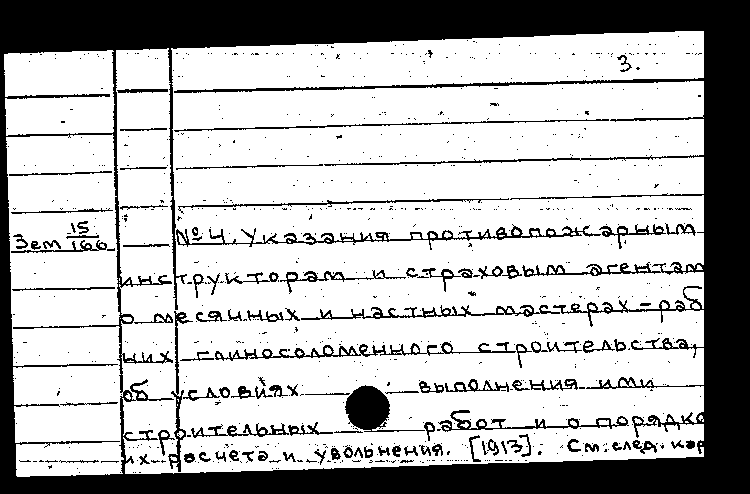 3.
Зем 15/166 №4. Указания противопожарным
инструкторам и страховым агентам
о месячных и частных мастерах-раб
них глиносоломенного строительства,
об условиях выполнения ими
строительных работ и о порядке
их расчета и увольнения. [1913]. См. след. кар